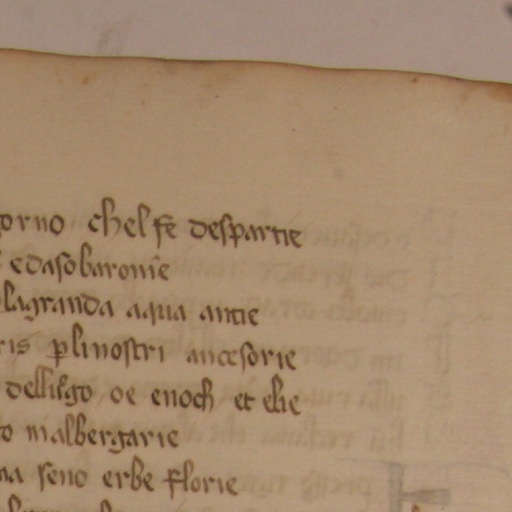 orno chelse despartie
edasobaronie
lagranda aqua antie
ris plinostri ancesorie
oe enoch et elie
o malbergarie
na seno erbe florie